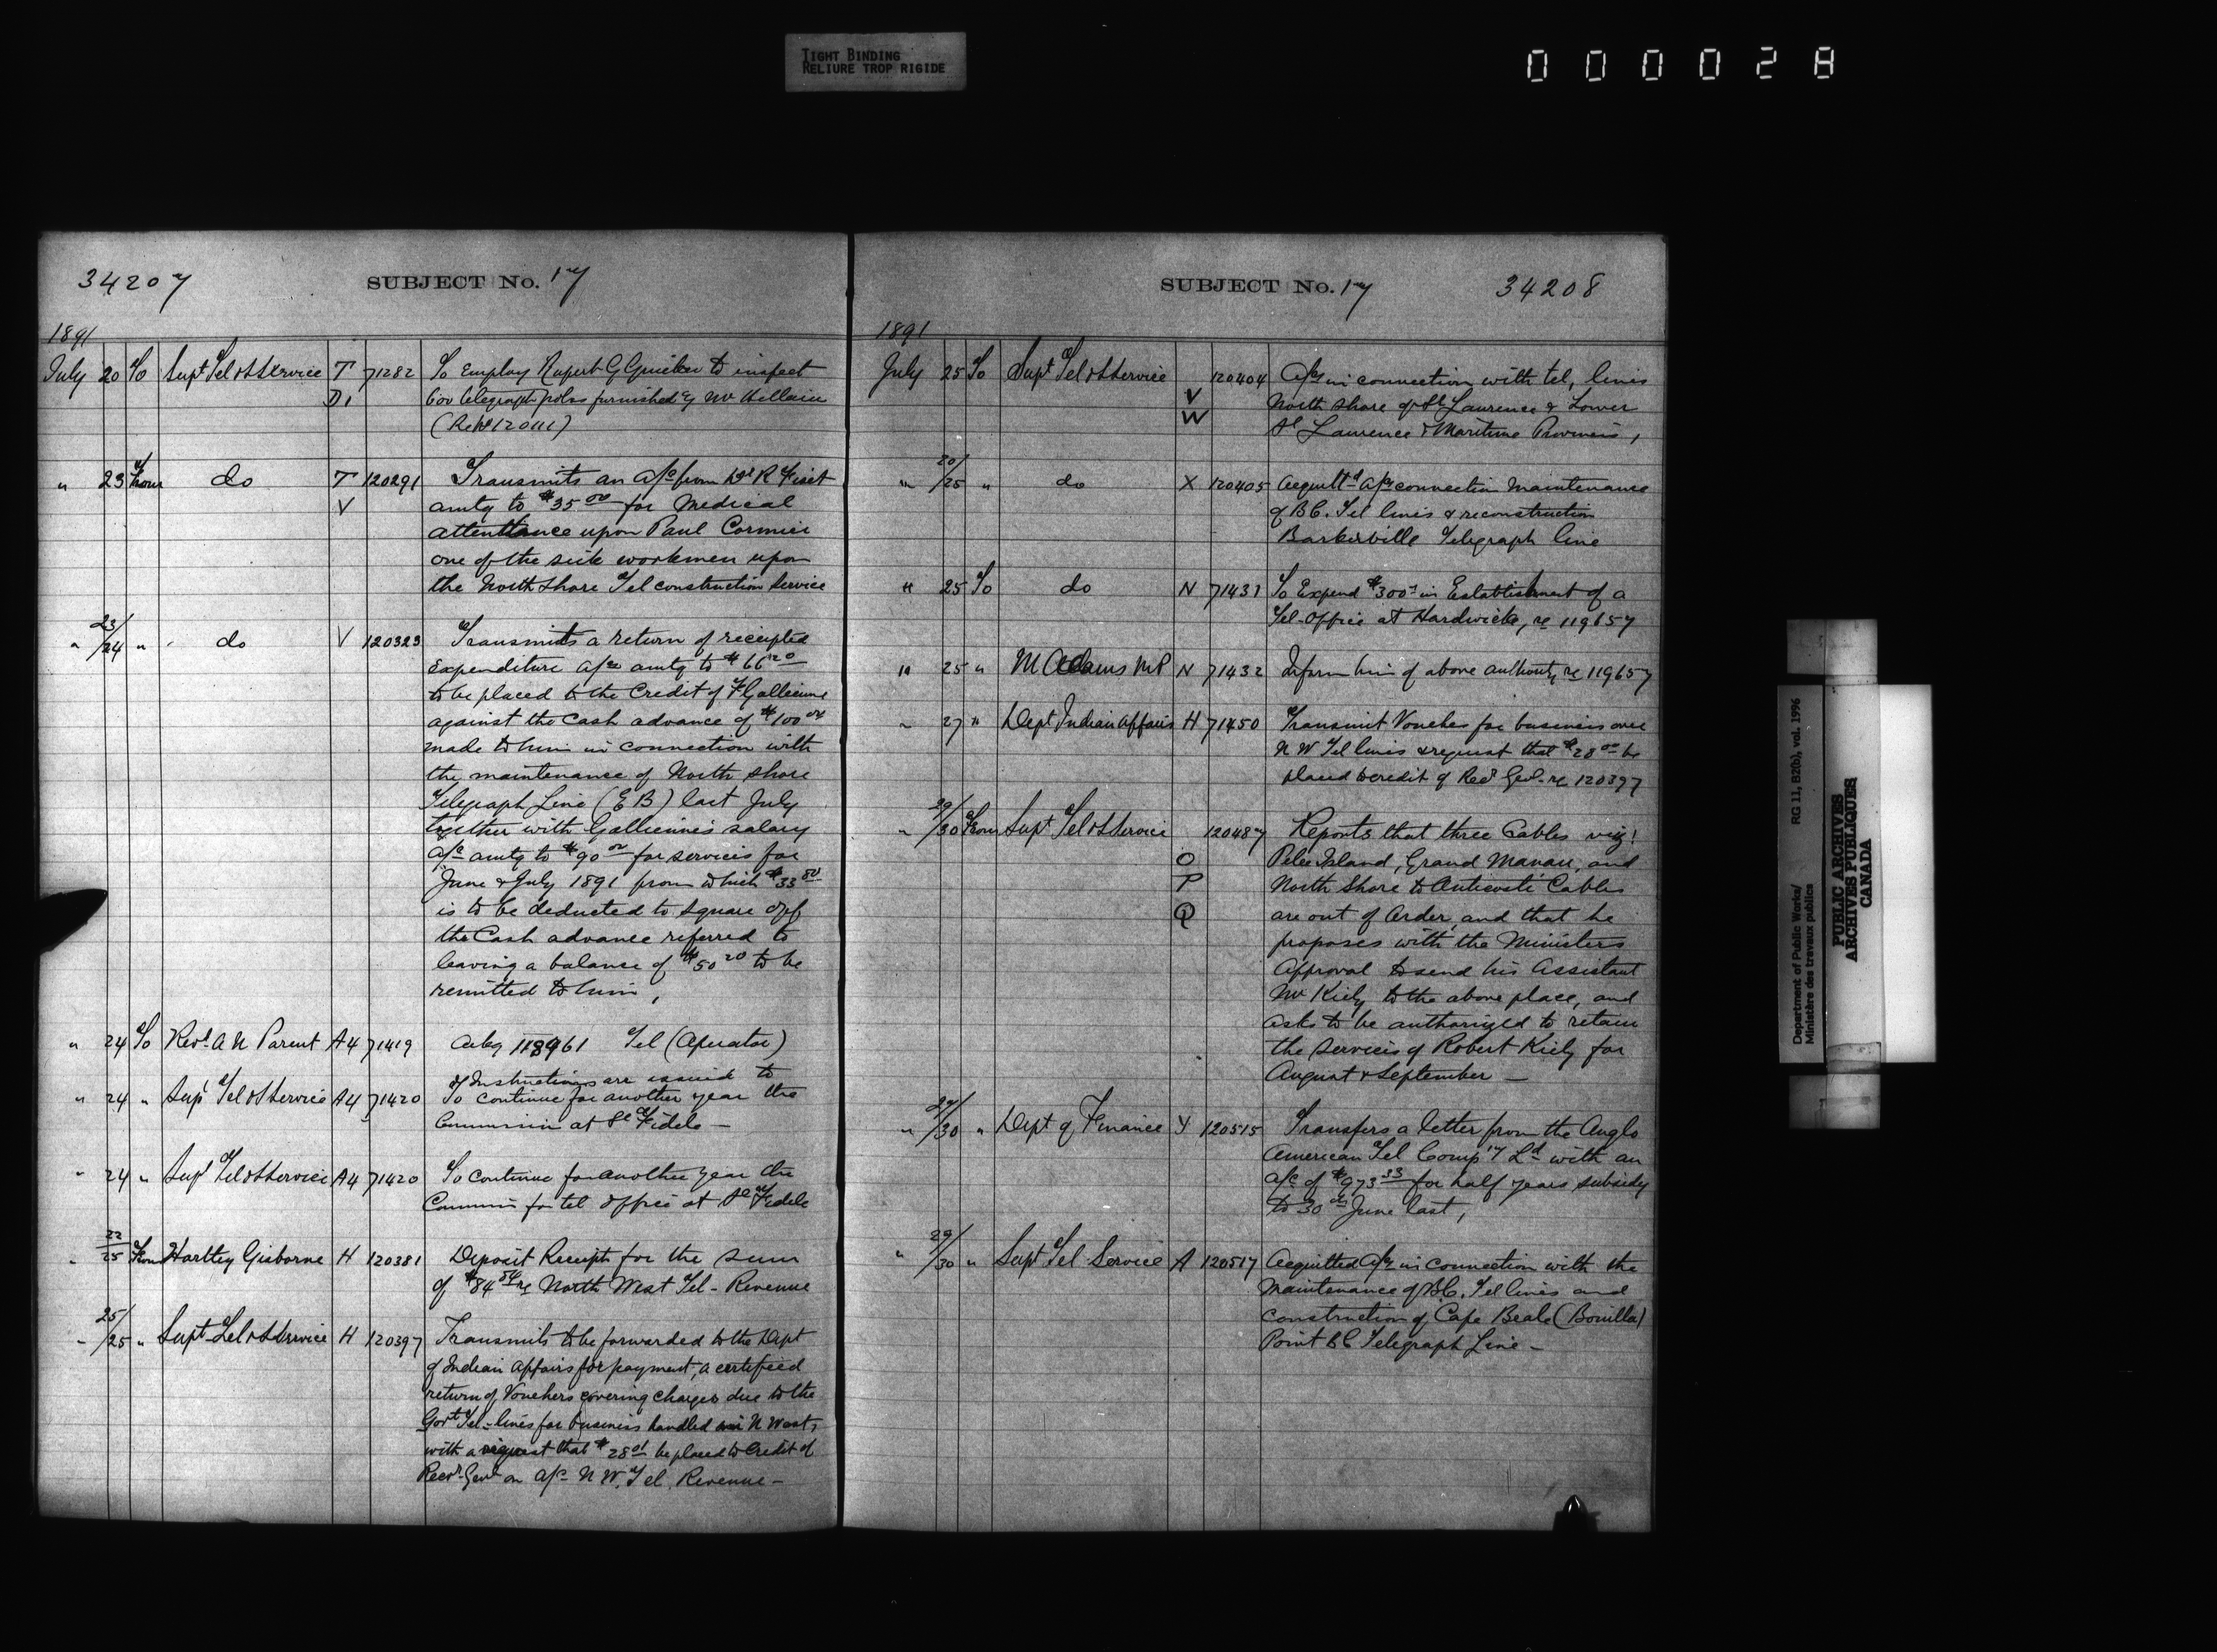 TIGHT BINDING
RELIURE TROP RIGIDE
000028
34207 SUBJECT No. 17
1891
July 20 To Supt Tel & S Service T 71282 To Employ Rupert G to inspect
D1 Gov telegraph poles furnished by Mr
(Refd 120111)
" 23 From do T 120291 Transmits an a/c from Dr R Fiset
V amtg to $35.00 for Medical
attendance upon Paul Cormier
one of the sick workmen upon
the North Shore Tel construction Service
" 23/24 " do V 120323 Transmits a return of receipted
Expenditure a/cs amtg to $66.20
to be placed to the Credit of F Gallienne
against the Cash advance of $100.00
made to him in connection with
the maintenance of North Shore
Telegraph Line (E B) last July
together with Gallienne's salary
a/c amtg to $90.00 for services for
June & July 1891 from which $33.80
is to be deducted to square off
the Cash advance referred to
leaving a balance of $50.20 to be
remitted to him,
" 24 To Revd A N Parent A4 71419 Ackg 118961 Tel (Operator)
& Instructions are issued to
" 24 " Supt Tel & S Service A4 71420 To continue for another year the
Commission at St Fidele —
" 24 " Supt Tel & S Service A4 71420 To continue for another year the
Commis for tel office at St Fidele
" 22/25 From Hartley Gisborne H 120381 Deposit Receipt for the sum
of $84.54 re North West Tel - Revenue
" 25/25 " Supt Tel & S Service H 120397 Transmits to be forwarded to the Dept
of Indian Affairs for payment, a certified
return of Vouchers covering charges due to the
Govt Tel-lines for business handled in N West,
with a request that $28.01 be placed to Credit of
Recr Genl on a/c N W. Tel. Revenue —
SUBJECT No. 17 34208
1891
July 25 To Supt Tel & S Service 120404 A/cs in connection with tel, lines
V North Shore of St Laurence & Lower
W St Laurence & Maritime Provinces,
" 20/25 " do X 120405 Acquittd a/cs connection Maintenance
of B C. Tel lines & reconstruction
Barkerville Telegraph line
" 25 To do N 71431 To Expend $300 in Establishment of a
Tel-Office at Hardwicke, re 119657
" 25 " M Adams MP N 71432 Inform him of above authority re 119657
" 27 " Dept Indian Affairs H 71450 Transmit Voucher for business over
N W Tel lines & request that $28.00 be
placed to credit of Recr Genl - re 120397
" 29/30 From Supt Tel & S Service 120487 Reports that three Cables viz!
O Pelee Island, Grand Manan, and
P North Shore to Anticosti Cables
Q are out of Order, and that he
proposes with the Ministers
Approval to send his Assistant
Mr Kiely to the above place, and
asks to be authorized to retain
the services of Robert Kiely for
August & September —
" /30 " Dept of Finance Y 120515 Transfers a letter from the Anglo
American Tel Comp'y Ld with an
a/c of $973.33 for half years subsidy
to 30th June last,
" 29/30 " Supt Tel Service A 120517 Acquitted a/cs in connection with the
Maintenance of B.C. Tel lines and
construction of Cape Beale (Bonilla)
Point B C Telegraph Line —
Department of Public Works/ RG 11, B2(b), vol. 1996
Ministère des travaux publics
PUBLIC ARCHIVES
ARCHIVES PUBLIQUES
CANADA